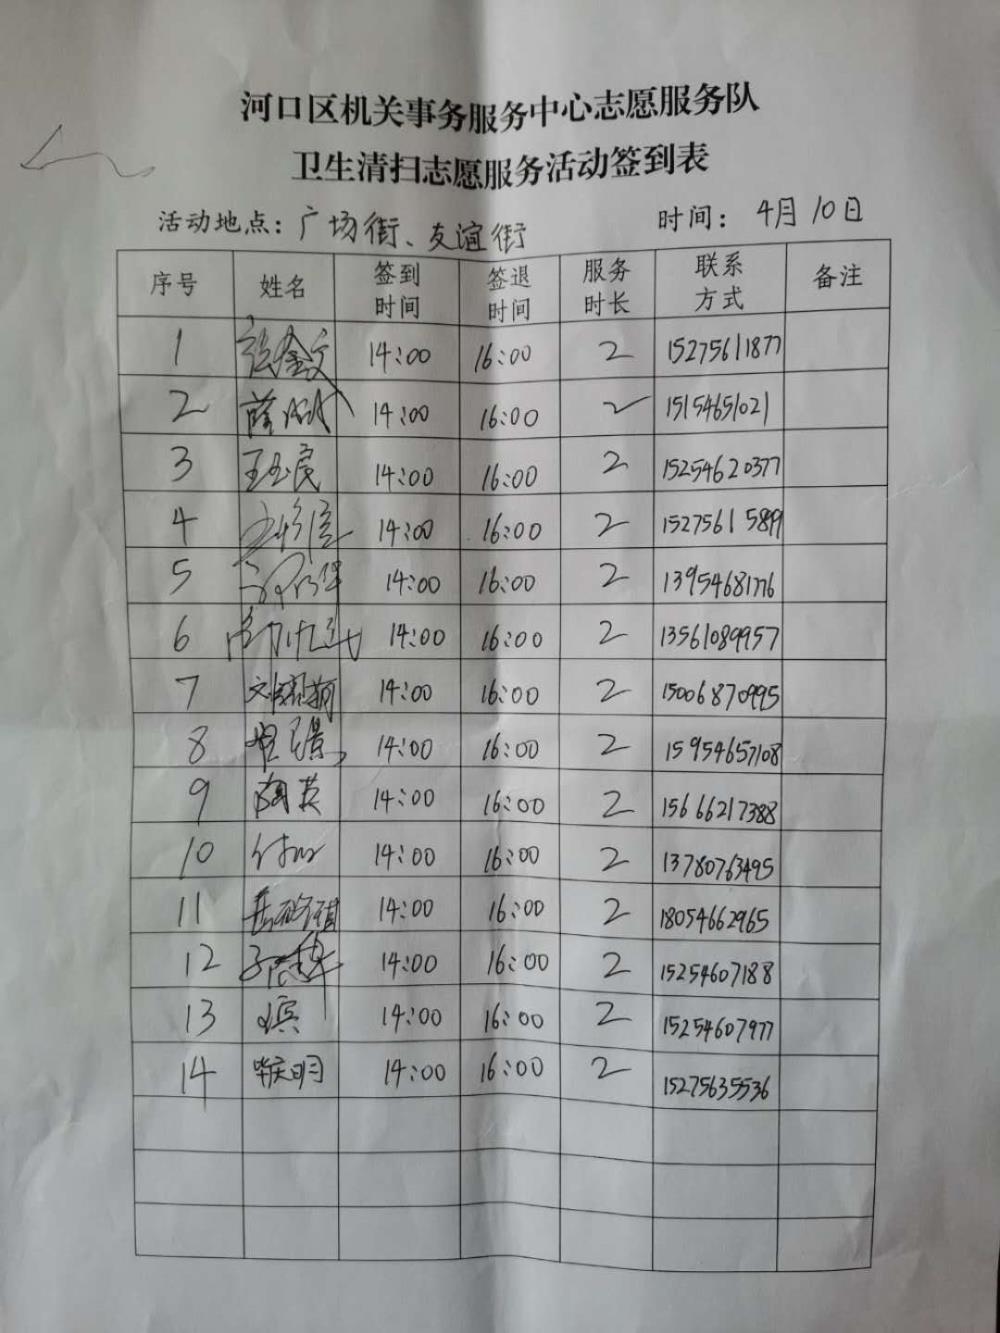 河口区机关事务服务中心志愿服务队
卫生清扫志愿服务活动签到表
活动地点：广场街、友谊街 时间：4月10日
序号 姓名 签到时间 签退时间 服务时长 联系方式 备注
1 14:00 16:00 2 15275611877
2 薛 14:00 16:00 2 15154651021
3 王玉民 14:00 16:00 2 15254620377
4 14:00 16:00 2 15275611589
5 14:00 16:00 2 13954681776
6 14:00 16:00 2 13561089957
7 14:00 16:00 2 15006870995
8 14:00 16:00 2 15954657108
9 14:00 16:00 2 15666217388
10 14:00 16:00 2 13780763495
11 14:00 16:00 2 18054662965
12 14:00 16:00 2 15254607188
13 14:00 16:00 2 15254607977
14 14:00 16:00 2 15275635536